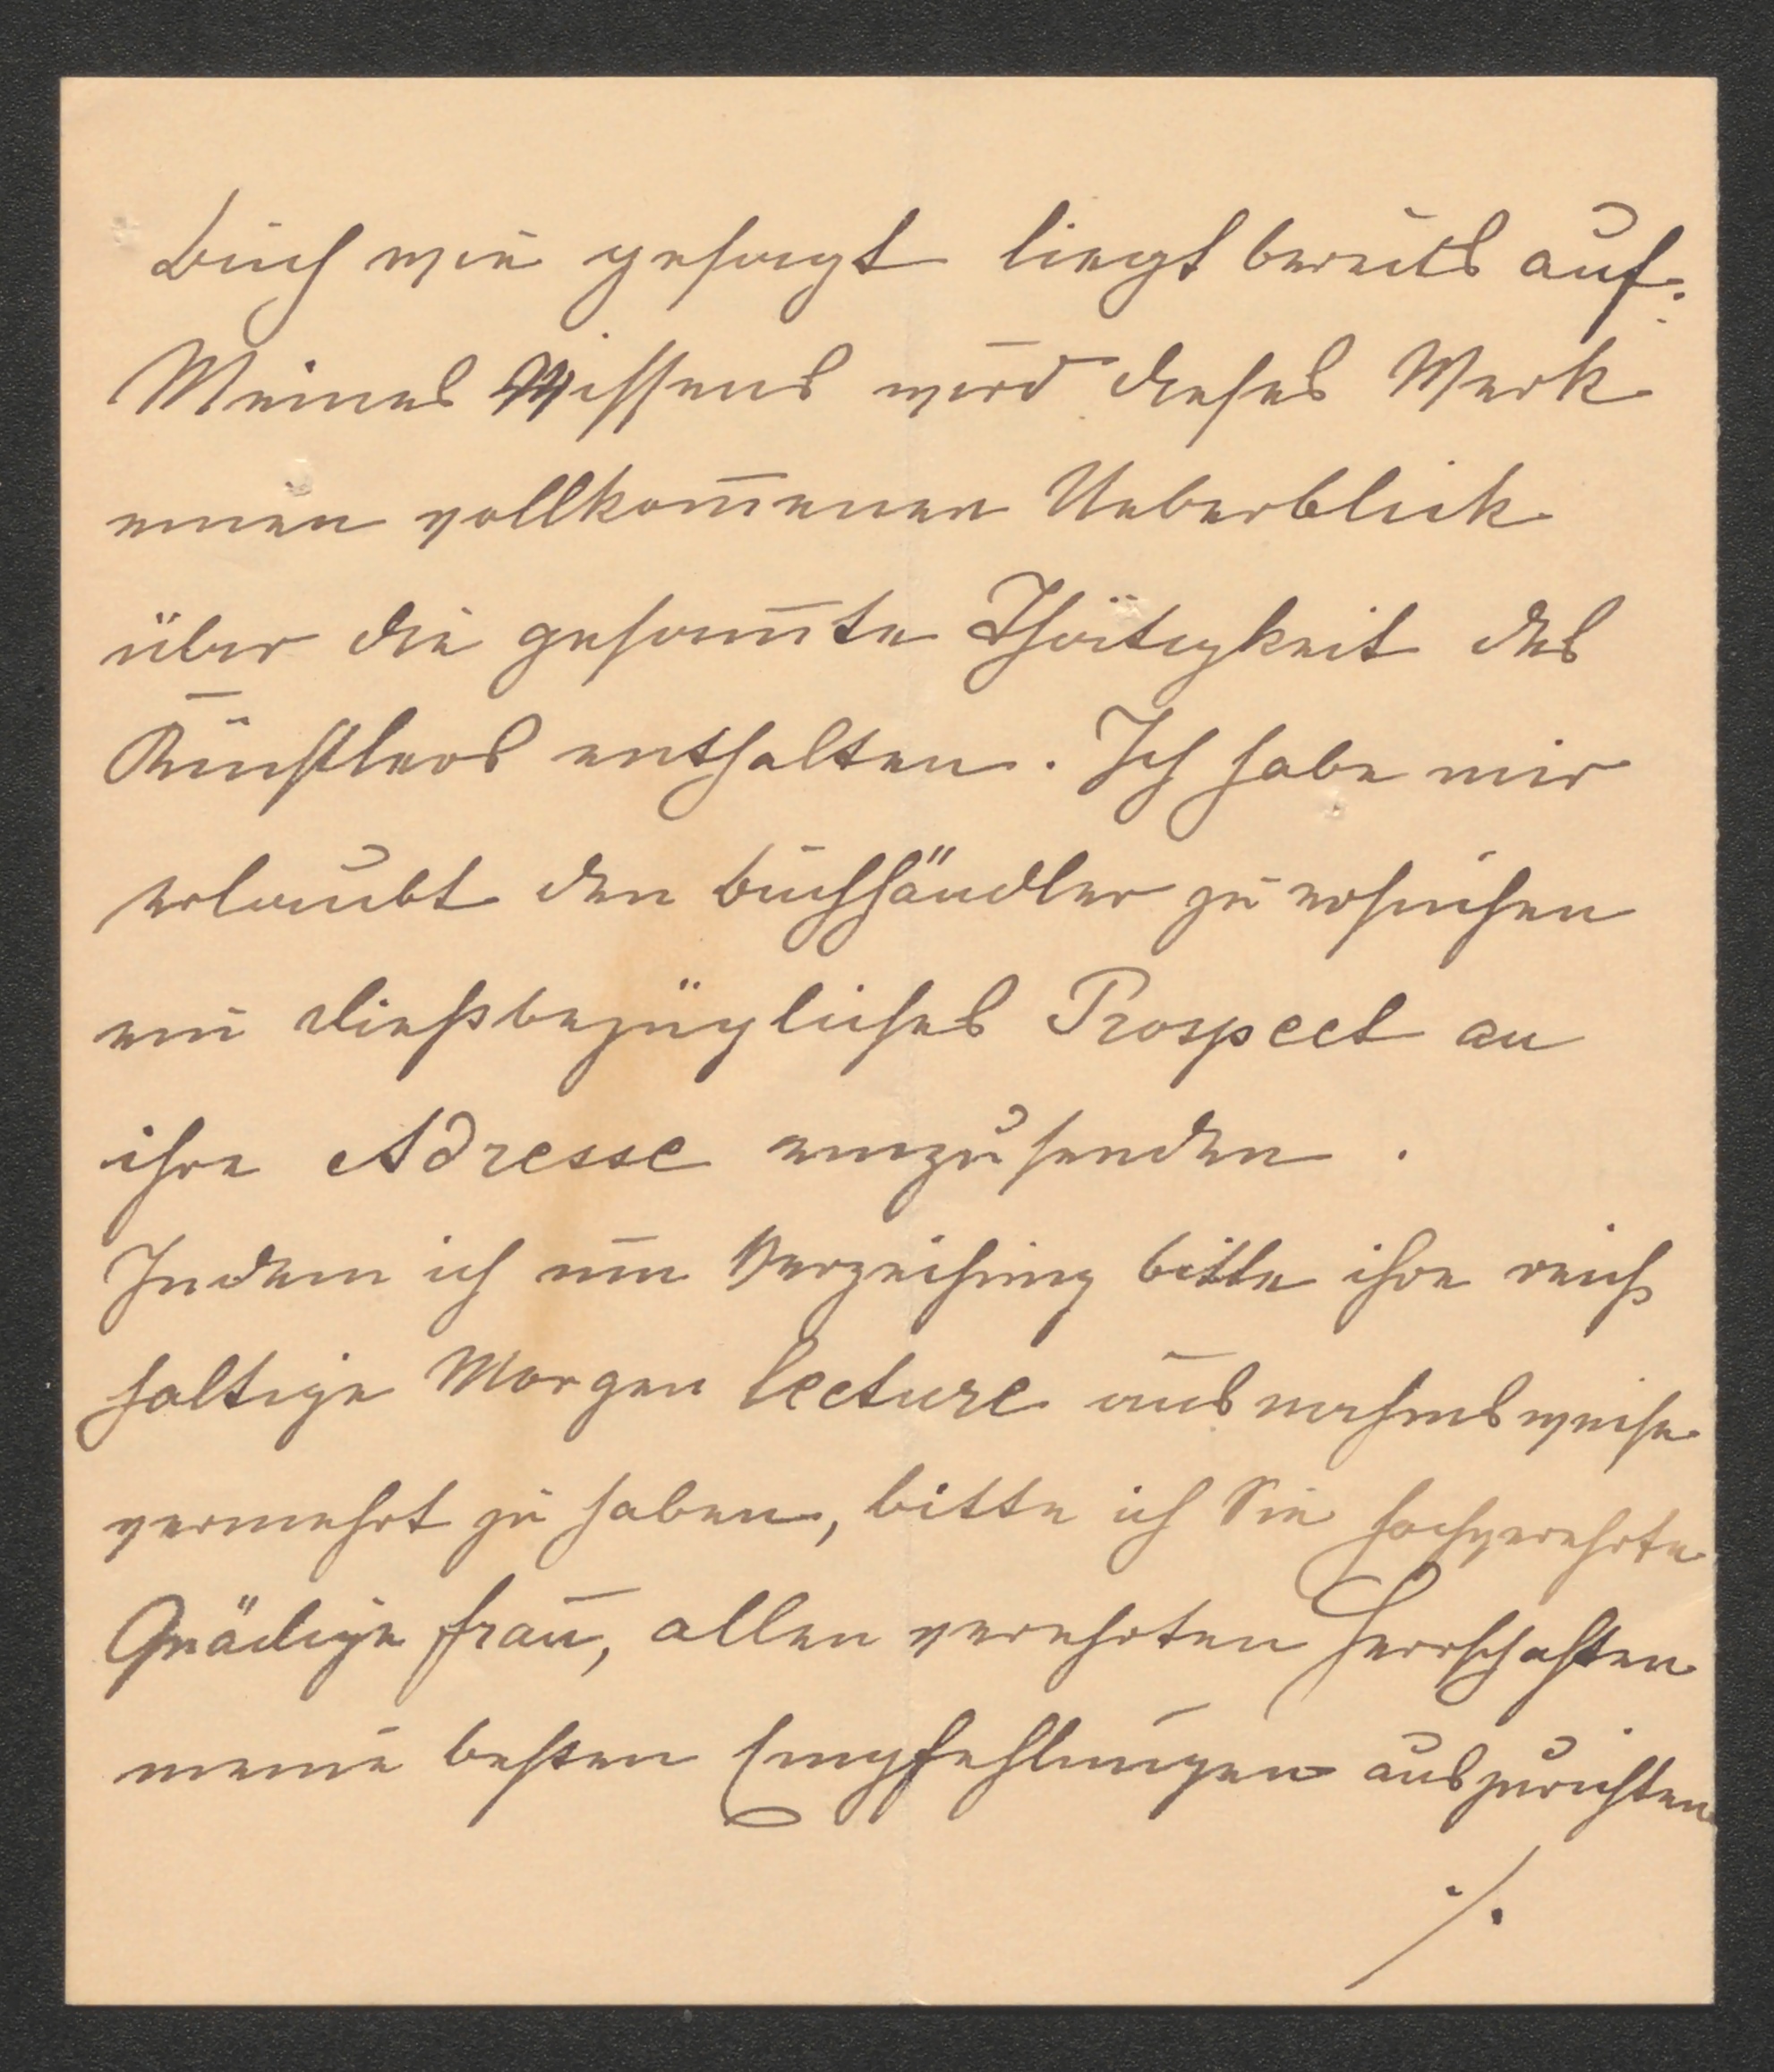 Buch wie gesagt liegt bereits auf.
Meines Wissens wird dieses Werk
einen vollkom̅enen Ueberblick
über die gesam̅te Thätigkeit des
Künstlers enthalten. Ich habe mir
erlaubt den Buchhändler zu ersuchen
ein dießbezügliches Prospect an
ihre Adresse einzusenden.
Indem ich um Verzeihung bitte ihre reich
haltige Morgen lecture ausnahmsweise
vermehrt zu haben, bitte ich Sie hochverehrte
Gnädige Frau, allen verehrten Herrschaften
meine besten Empfehlungen auszurichten
./.